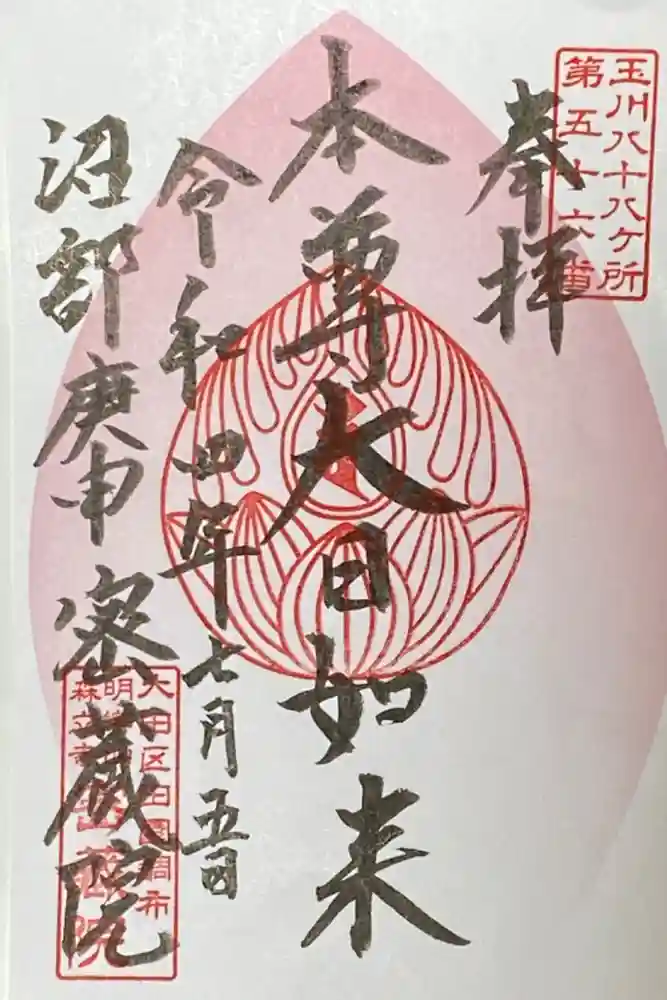 玉川八十八ケ所
第五十六番
奉拝
本尊大日如来
令和四年七月五日
沼部庚申 密蔵院
大田区田園調布
密蔵院